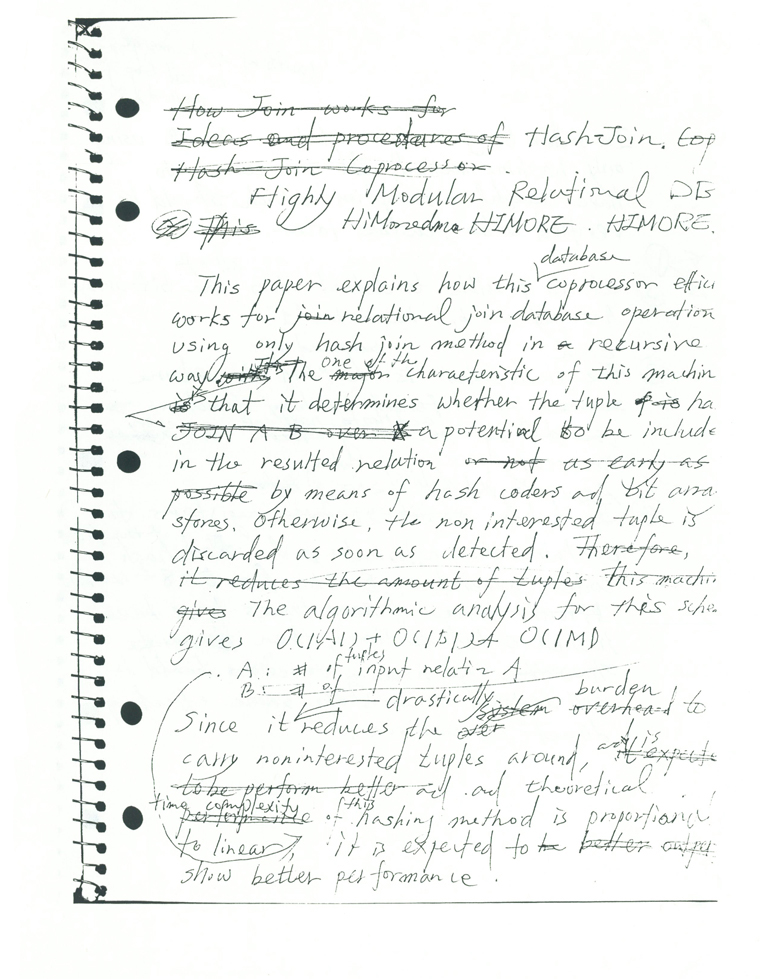 How Join works for
Ideas and procedures of Hash-Join. Cop
Hash Join Coprocessor.
Highly Modular Relational DB
This HiMoredma HIMORE. HIMORE.
database
This paper explains how this coprocessor effici
works for join relational join database operation
using only hash join method in a recursive
way with The major one of the characteristic of this machin
is that it determines whether the tuple is ha
JOIN A B over X a potential to be include
in the resulted relation or not as early as
possible by means of hash coders ad bit arra
stores. Otherwise, the non interested tuple is
discarded as soon as detected. Therefore,
it reduces the amount of tuples This machin
gives The algorithmic analysis for this sche
gives O(|A|) + O(|B|) + O(|M|)
A: # of tuples input relatin A
B: # of
drastically system burden
Since it reduces the overhead to
carry noninterested tuples around, it is it expecte
to be perform better ad ad theoretical
time complexity this
performance of hashing method is proportional
to linear, it is expected to be better outper
show better performance.